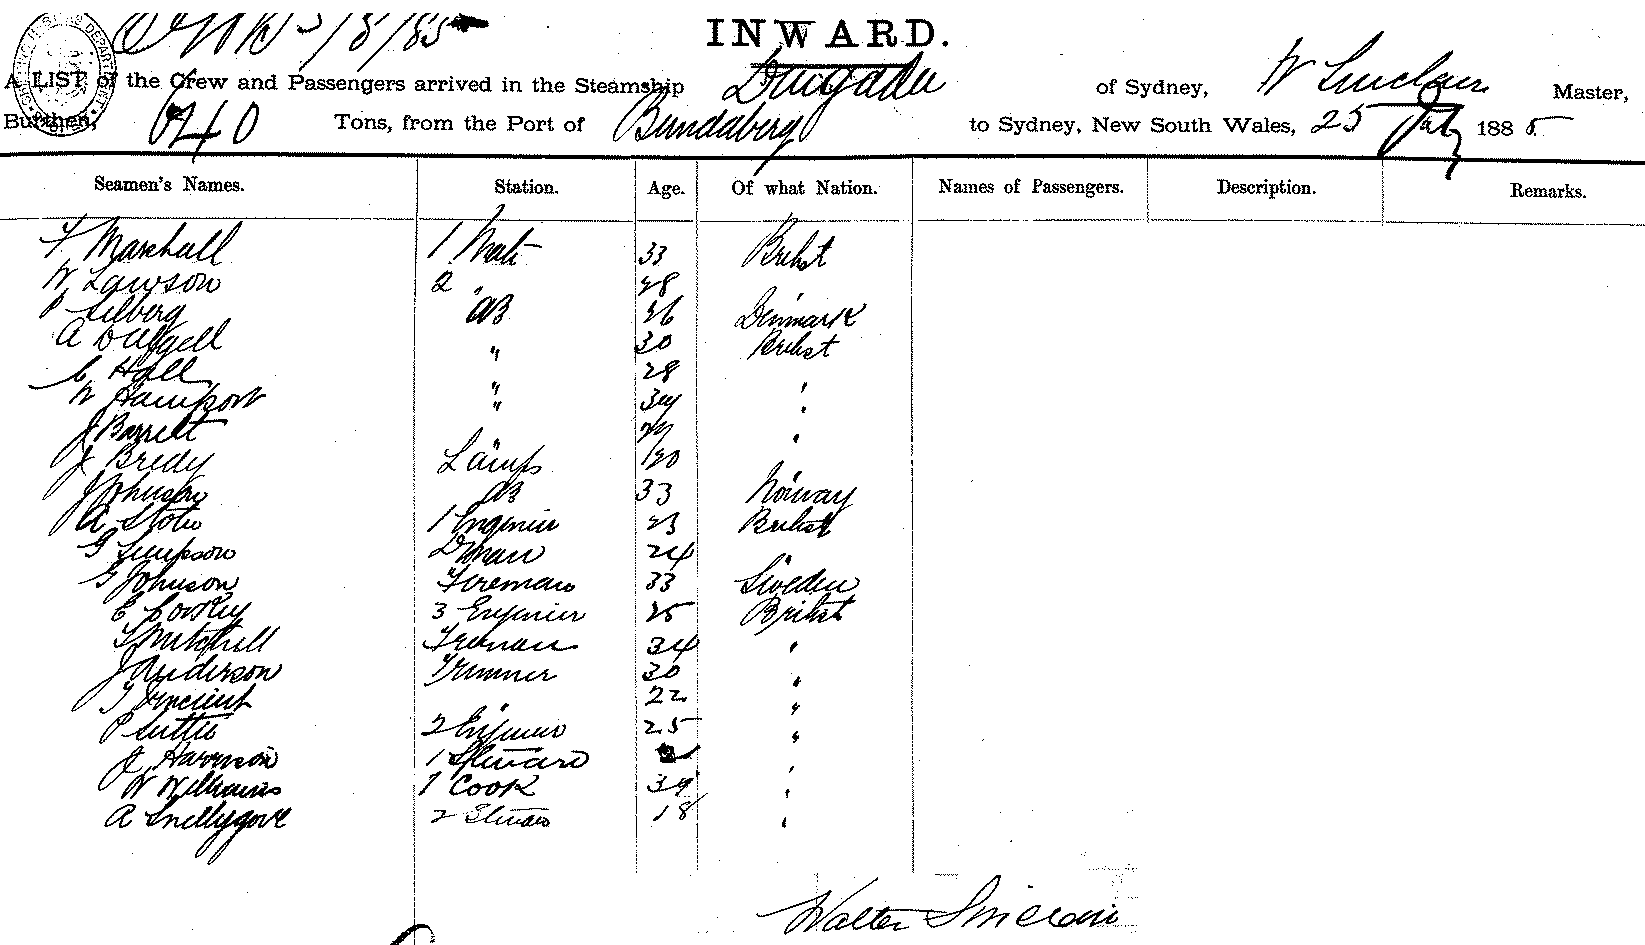 INWARD.
A LIST of the Crew and Passengers arrived in the Steamship Dingadee of Sydney, W Sinclair Master,
Burthen, 640 Tons, from the Port of Bundaberg to Sydney, New South Wales, 25 July 1885
Seamen's Names. Station. Age. Of what Nation. Names of Passengers. Description. Remarks.
F Marshall 1 Mate 33 British
W Lawson 2 " 28
P Silberg AB 26 Denmark
A Dalgell " 30 British
C Hall " 28 "
W Hampson " 34 "
J Barrett "
J Bredy Lamps 20
J Johnson AB 33 Norway
A Stote 1 Engineer 23 British
G Simpson Dman 24
G Johnson Fireman 33 Sweden
E Corkey 3 Engineer 25 British
Mitchell Fireman 34 "
J Anderson Trimmer 30 "
T Vincient " 22 "
P Suttie 2 Engineer 25 "
J Harrison 1 Steward "
W Williams 1 Cook 39 "
A Snellygove 2 Steward 18 "
Walter Sinclair